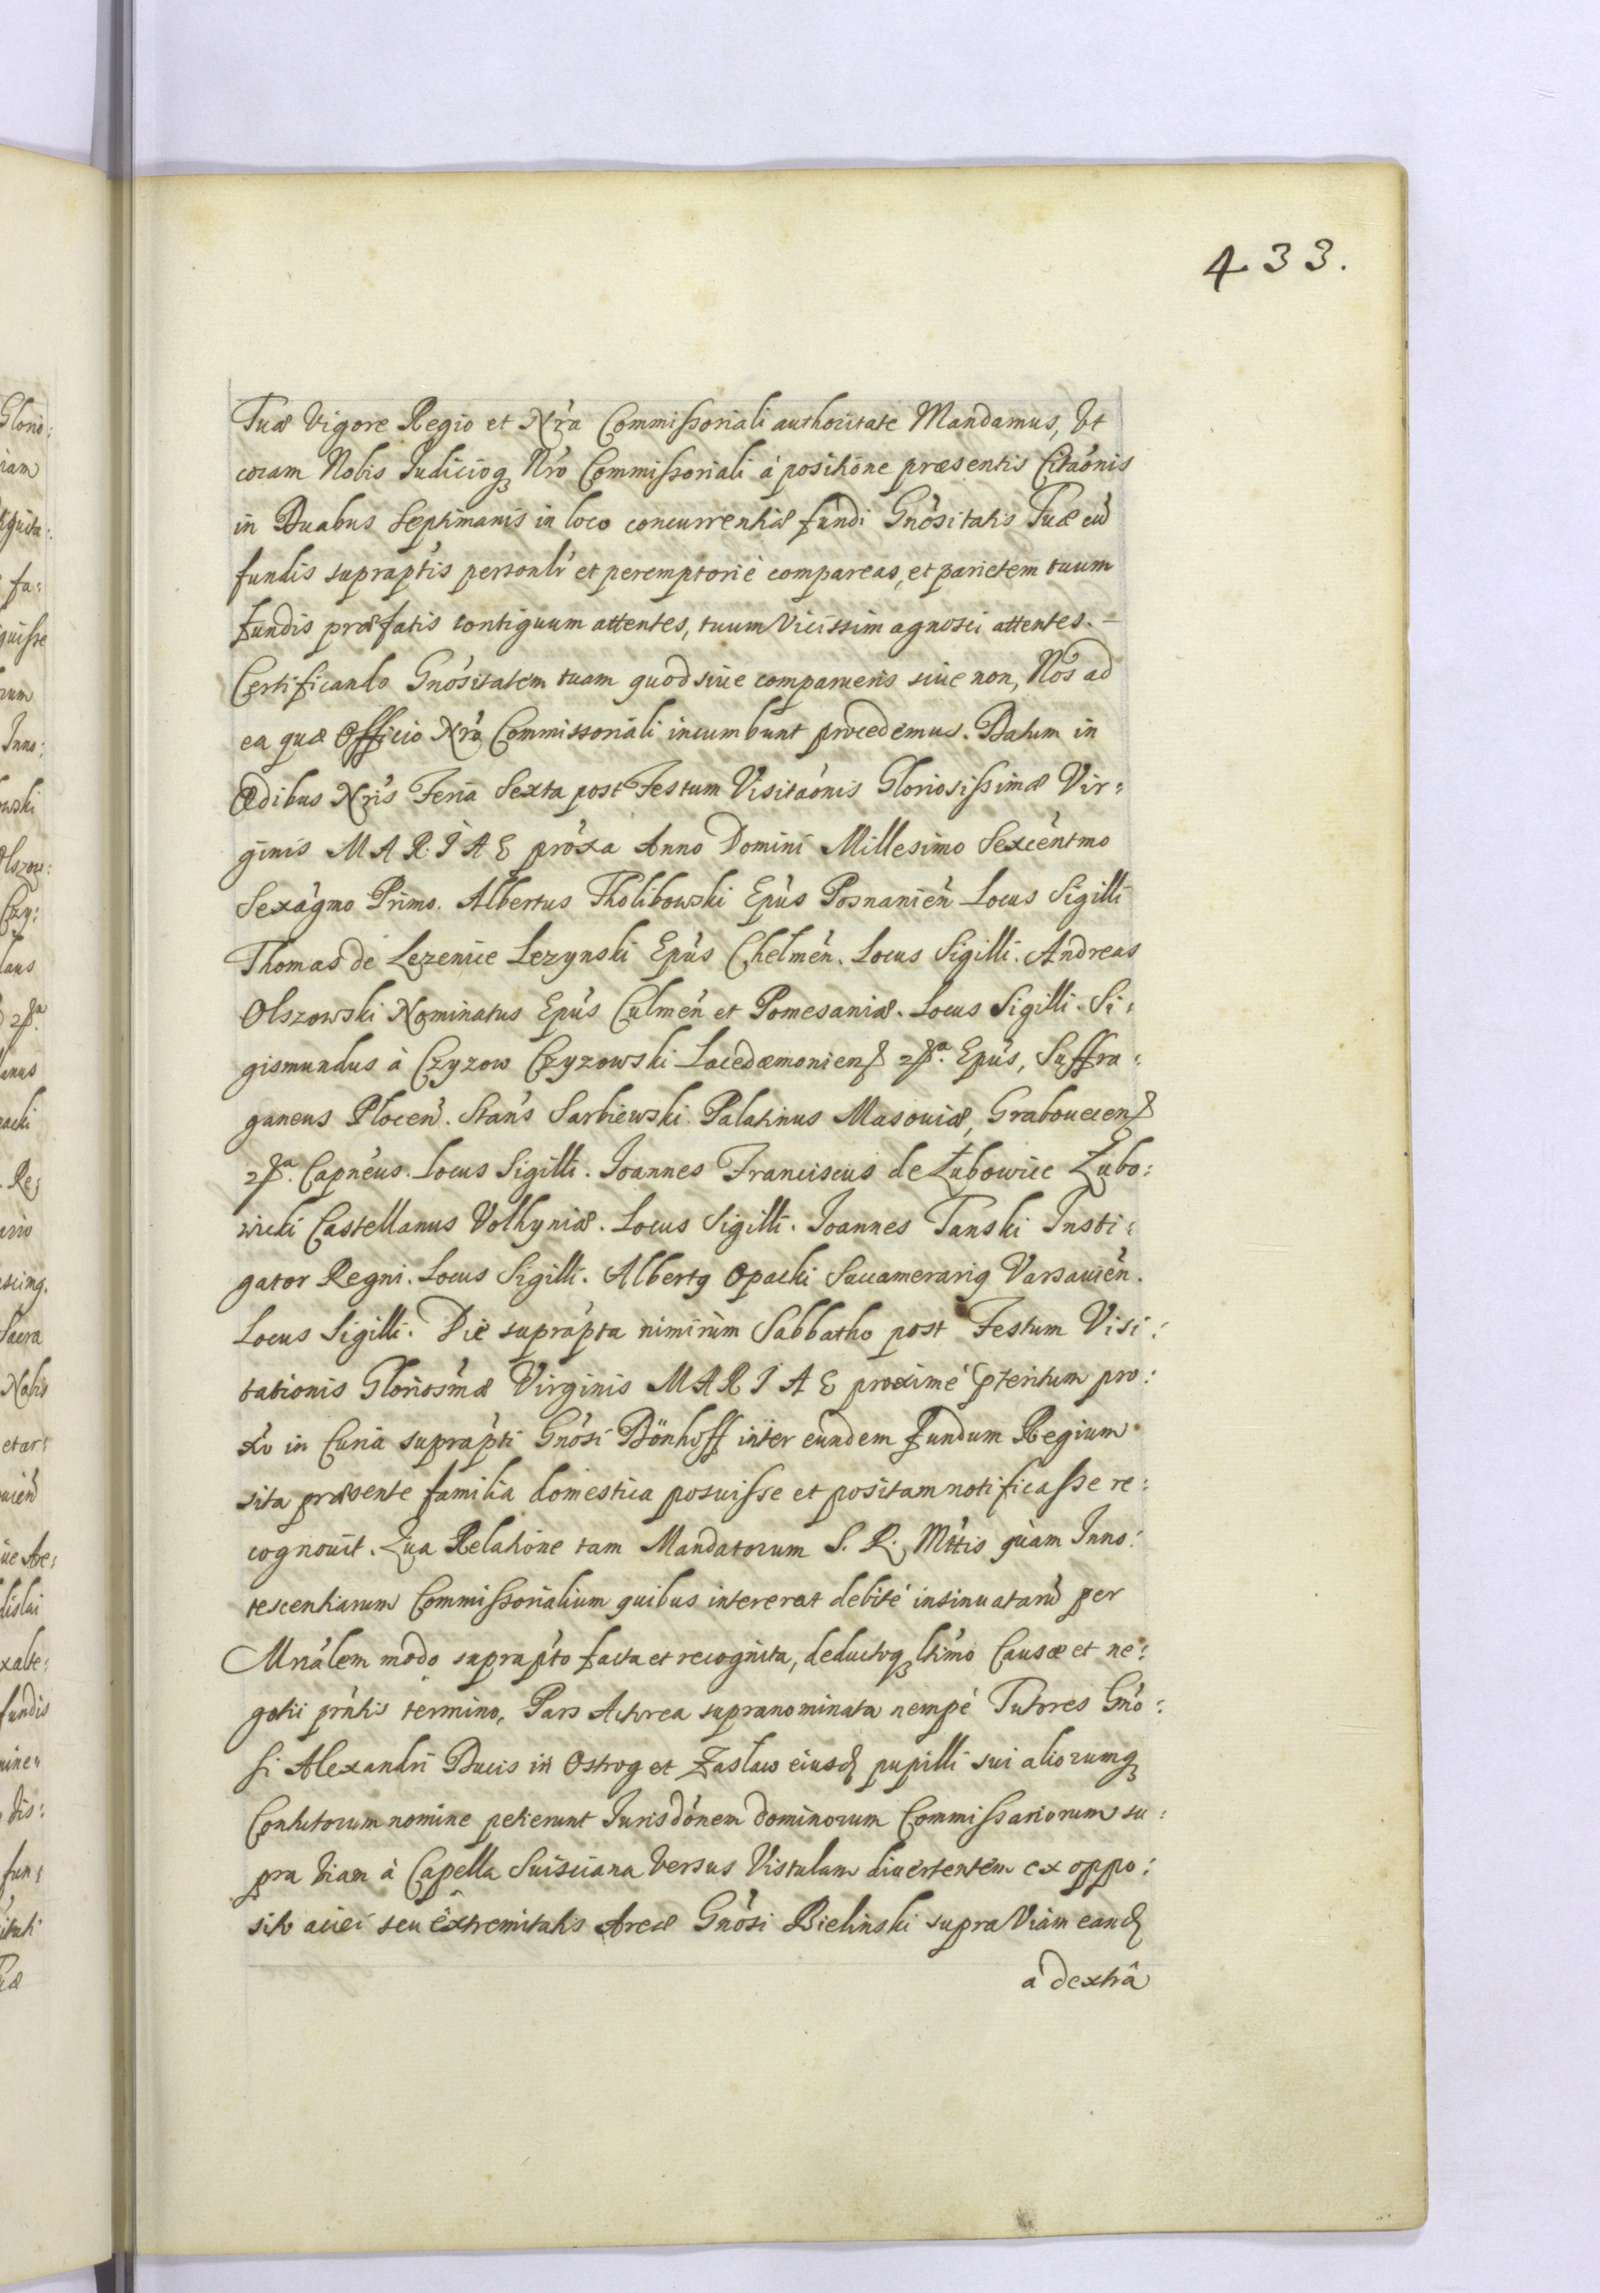 433.
Tuæ Vigore Regio et Nr̃a Commissoriali authoritate Mandamus, Ut
coram Nobis Iudicioq₃ Nr̃o Commissoriali à positione præsentis Citaõnis
in Duabus Septimanis in loco concurrentiæ fundi Gnõsitatis Tuæ cũ
fundis supraptis personlr̃ et peremptoriè compareas, et parietem tuum
fundis præfatis contiguum attentes, tuum vicissim agnosci attentes. =
Certificando Gnõsitatem tuam quod siue comparueris siue non, Nos ad
ea quæ Officio Nr̃o Commissoriali incumbunt procedemus. Datum in
Ædibus Nr̃is Feria Sexta post Festum Visitaõnis Gloriosissimæ Vir:
ginis MARIAE prõxa Anno Domini Millesimo Sexcẽntmo
Sexãgmo Primo. Albertus Tholibowski Epũs Posnaniẽn Locus Sigilli
Thomas de Lezenice Lezynski Epũs Chelmẽn. Locus Sigilli. Andreas
Olszowski Nominatus Epũs Culmẽn et Pomesaniæ. Locus Sigilli. Si:
gismundus à Czyzow Czyzowski Lacedæmonien 2ꝑª. Epũs, Suffra:
ganeus Plocen̄. Stan̄s Sarbiewski Palatinus Masouiæ, Grabouecen
2ꝑª. Capnẽus. Locus Sigilli. Joannes Franciscus de Łubowice Łubo:
wicki Castellanus Volhyniæ. Locus Sigilli. Joannes Tanski Insti:
gator Regni. Locus Sigilli. Albertꝰ Opacki Succamerariꝰ Varsauiẽn.
Locus Sigilli. Die suprapta nimirùm Sabbatho post Festum Visi:
tationis Gloriosm̃æ Virginis MARIAE proximè ꝑteritum pro:
xõ in Curia suprapti Gnõsi Dönhoff inter eundem Fundum Regium
sita præsente familia domestica posuisse et positam notificasse re:
cognouit. Qua Relatione tam Mandatorum S. R. Mttis quàm Inno:
tescentiarum Commissorialium quibus intererat debitè insinuatarũ per
Mriãlem modo suprapto facta et recognita, deductoq₃ ltimo Causæ et ne:
gotii prñtis termino, Pars Actorea supranominata nempè Tutores Gno:
si Alexandri Ducis in Ostrog et Zaslaw eiusd pupilli sui aliorumq₃
Contutorum nomine petierunt Jurisdõnem dominorum Commissariorum su:
pra Viam à Capella Suisciana Versus Vistulam diuertentem ex oppo:
sito aciei seu extremitatis Areæ Gnõsi Bielinski supra Viam eand
à dextrâ